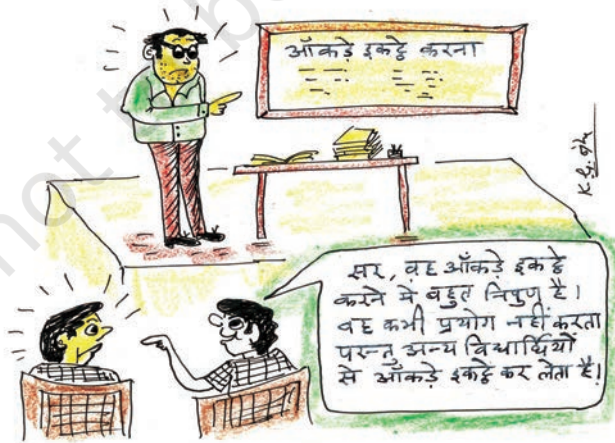 आँकड़े इकट्ठे करना
सर, वह आँकड़े इकट्ठे
करने में बहुत निपुण है।
वह कभी प्रयोग नहीं करता
परन्तु अन्य विद्यार्थियों
से आँकड़े इकट्ठे कर लेता है।
not to b